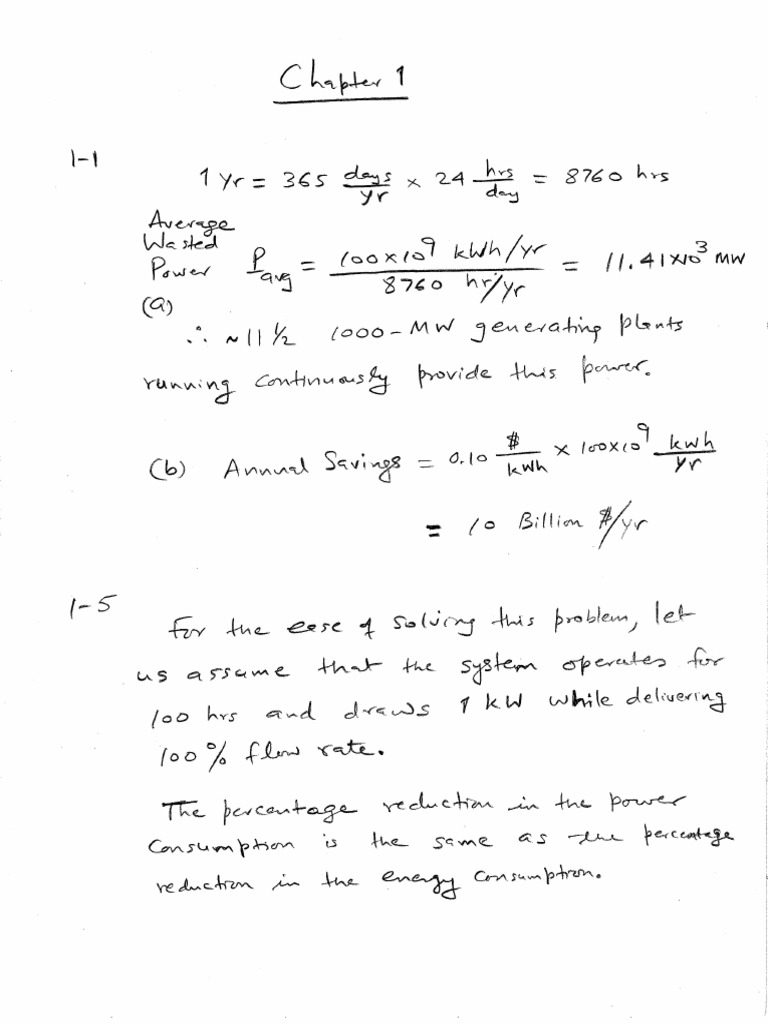 Chapter 1
1-1
1 Yr = 365 days/yr × 24 hrs/day = 8760 hrs
Average
Wasted
Power P_avg = 100×10^9 kWh/yr / 8760 hr/yr = 11.41×10^3 MW
(a)
∴ ~11 ½ 1000-MW generating plants
running continuously provide this power.
(b) Annual Savings = 0.10 $/kWh × 100×10^9 kWh/yr
= 10 Billion $/yr
1-5
For the ease of solving this problem, let
us assume that the system operates for
100 hrs and draws 1 kW while delivering
100% flow rate.
The percentage reduction in the power
consumption is the same as the percentage
reduction in the energy consumption.